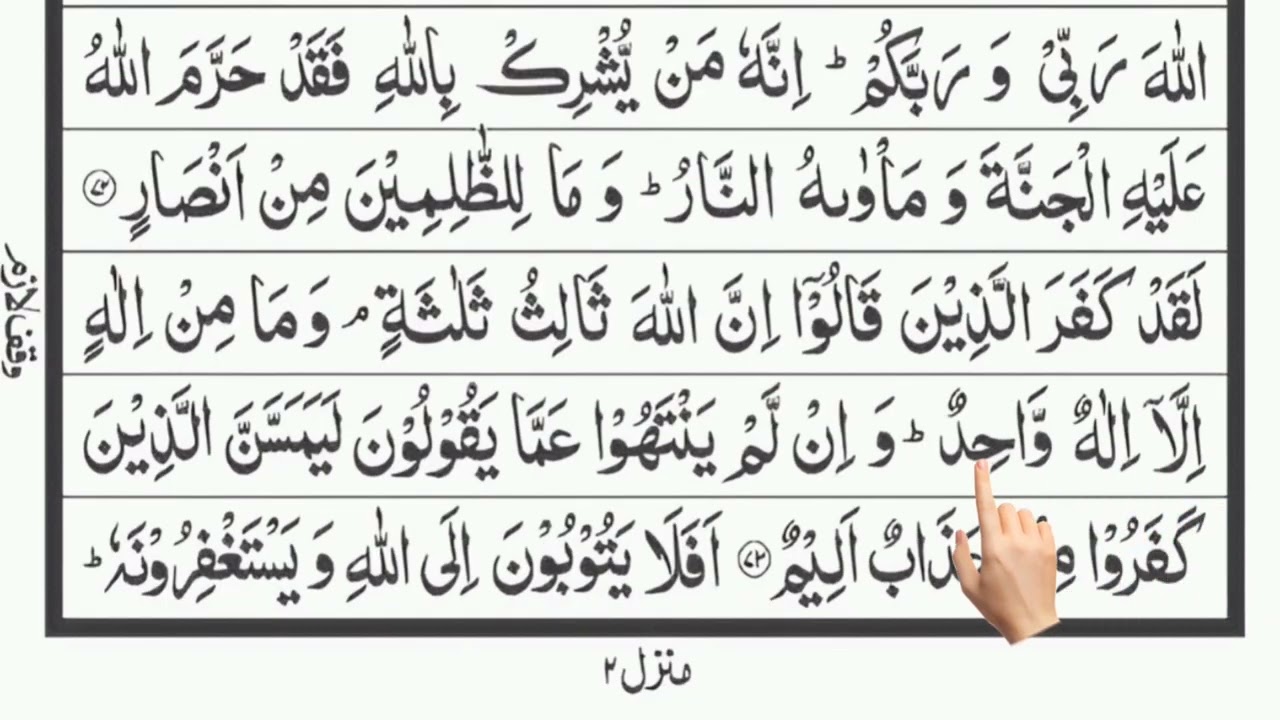 اللهَ رَبِّیْ وَ رَبَّكُمْ ؕ اِنَّهٗ مَنْ یُّشْرِكْ بِاللهِ فَقَدْ حَرَّمَ اللهُ
عَلَیْهِ الْجَنَّةَ وَ مَاْوٰىهُ النَّارُ ؕ وَ مَا لِلظّٰلِمِیْنَ مِنْ اَنْصَارٍ ﴿۷۲﴾
لَقَدْ كَفَرَ الَّذِیْنَ قَالُوْۤا اِنَّ اللهَ ثَالِثُ ثَلٰثَةٍ ۘ وَ مَا مِنْ اِلٰهٍ
وقف لازم
اِلَّاۤ اِلٰهٌ وَّاحِدٌ ؕ وَ اِنْ لَّمْ یَنْتَهُوْا عَمَّا یَقُوْلُوْنَ لَیَمَسَّنَّ الَّذِیْنَ
كَفَرُوْا عَذَابٌ اَلِیْمٌ ﴿۷۳﴾ اَفَلَا یَتُوْبُوْنَ اِلَی اللهِ وَ یَسْتَغْفِرُوْنَهٗ ؕ
منزل ۲